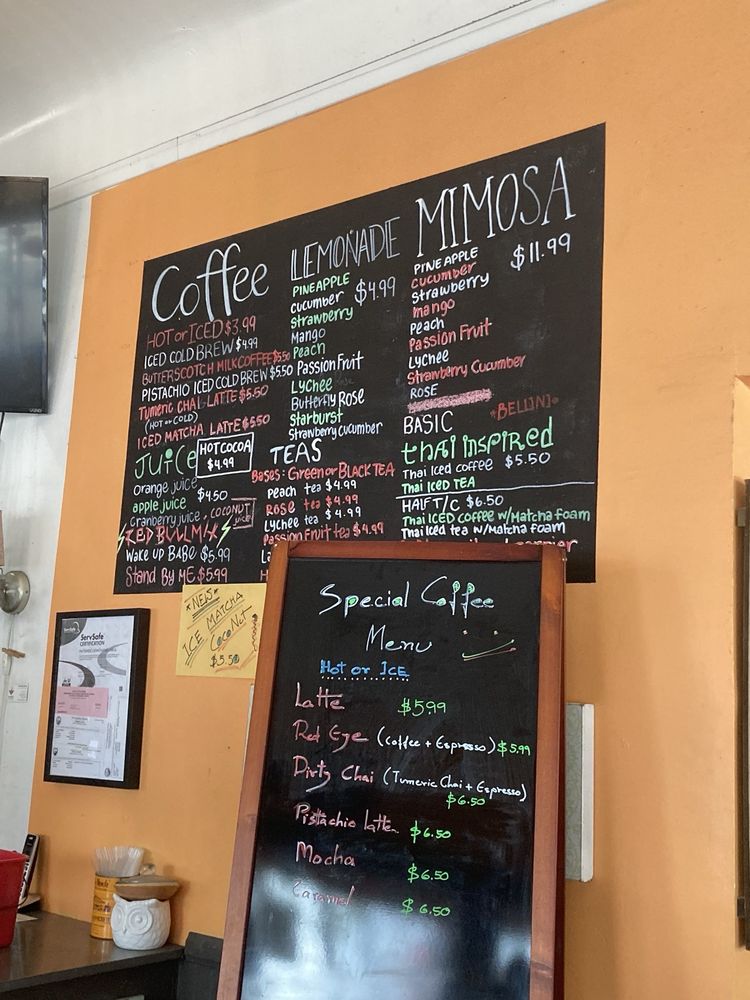 Coffee
HOT or ICED $3.99
ICED COLD BREW $4.99
BUTTERSCOTCH MILK COFFEE $5.50
PISTACHIO ICED COLD BREW $5.50
Tumeric CHAI-LATTE $5.50
(HOT or COLD)
ICED MATCHA LATTE $5.50
JUICE
HOT COCOA
$4.99
orange juice
$4.50
apple juice
cranberry juice, COCONUT
juice
RED BULL MIX
Wake up BABE $5.99
Stand By ME $5.99
LEMONADE
PINEAPPLE
$4.99
cucumber
Strawberry
Mango
Peach
Passion Fruit
Lychee
Butterfly Rose
Starburst
Strawberry cucumber
TEAS
Bases: Green or BLACK TEA
Peach tea $4.99
Rose tea $4.99
Lychee tea $4.99
Passion Fruit tea $4.99
MIMOSA
PINEAPPLE
$11.99
cucumber
Strawberry
mango
Peach
Passion Fruit
Lychee
Strawberry Cucumber
ROSE
BASIC
*BELLINI*
tHAI INSPIRED
Thai Iced coffee $5.50
Thai ICED TEA
HALF T/C $6.50
Thai ICED coffee w/Matcha foam
Thai Iced tea w/Matcha foam
*NEW*
ICE MATCHA
COCONUT
$5.50
ServSafe
CERTIFICATION
Special Coffee
Menu
Hot or ICE
Latte $5.99
Red Eye (Coffee + Espresso) $5.99
Dirty Chai (Tumeric Chai + Espresso)
$6.50
Pistachio latte $6.50
Mocha $6.50
Caramel $6.50